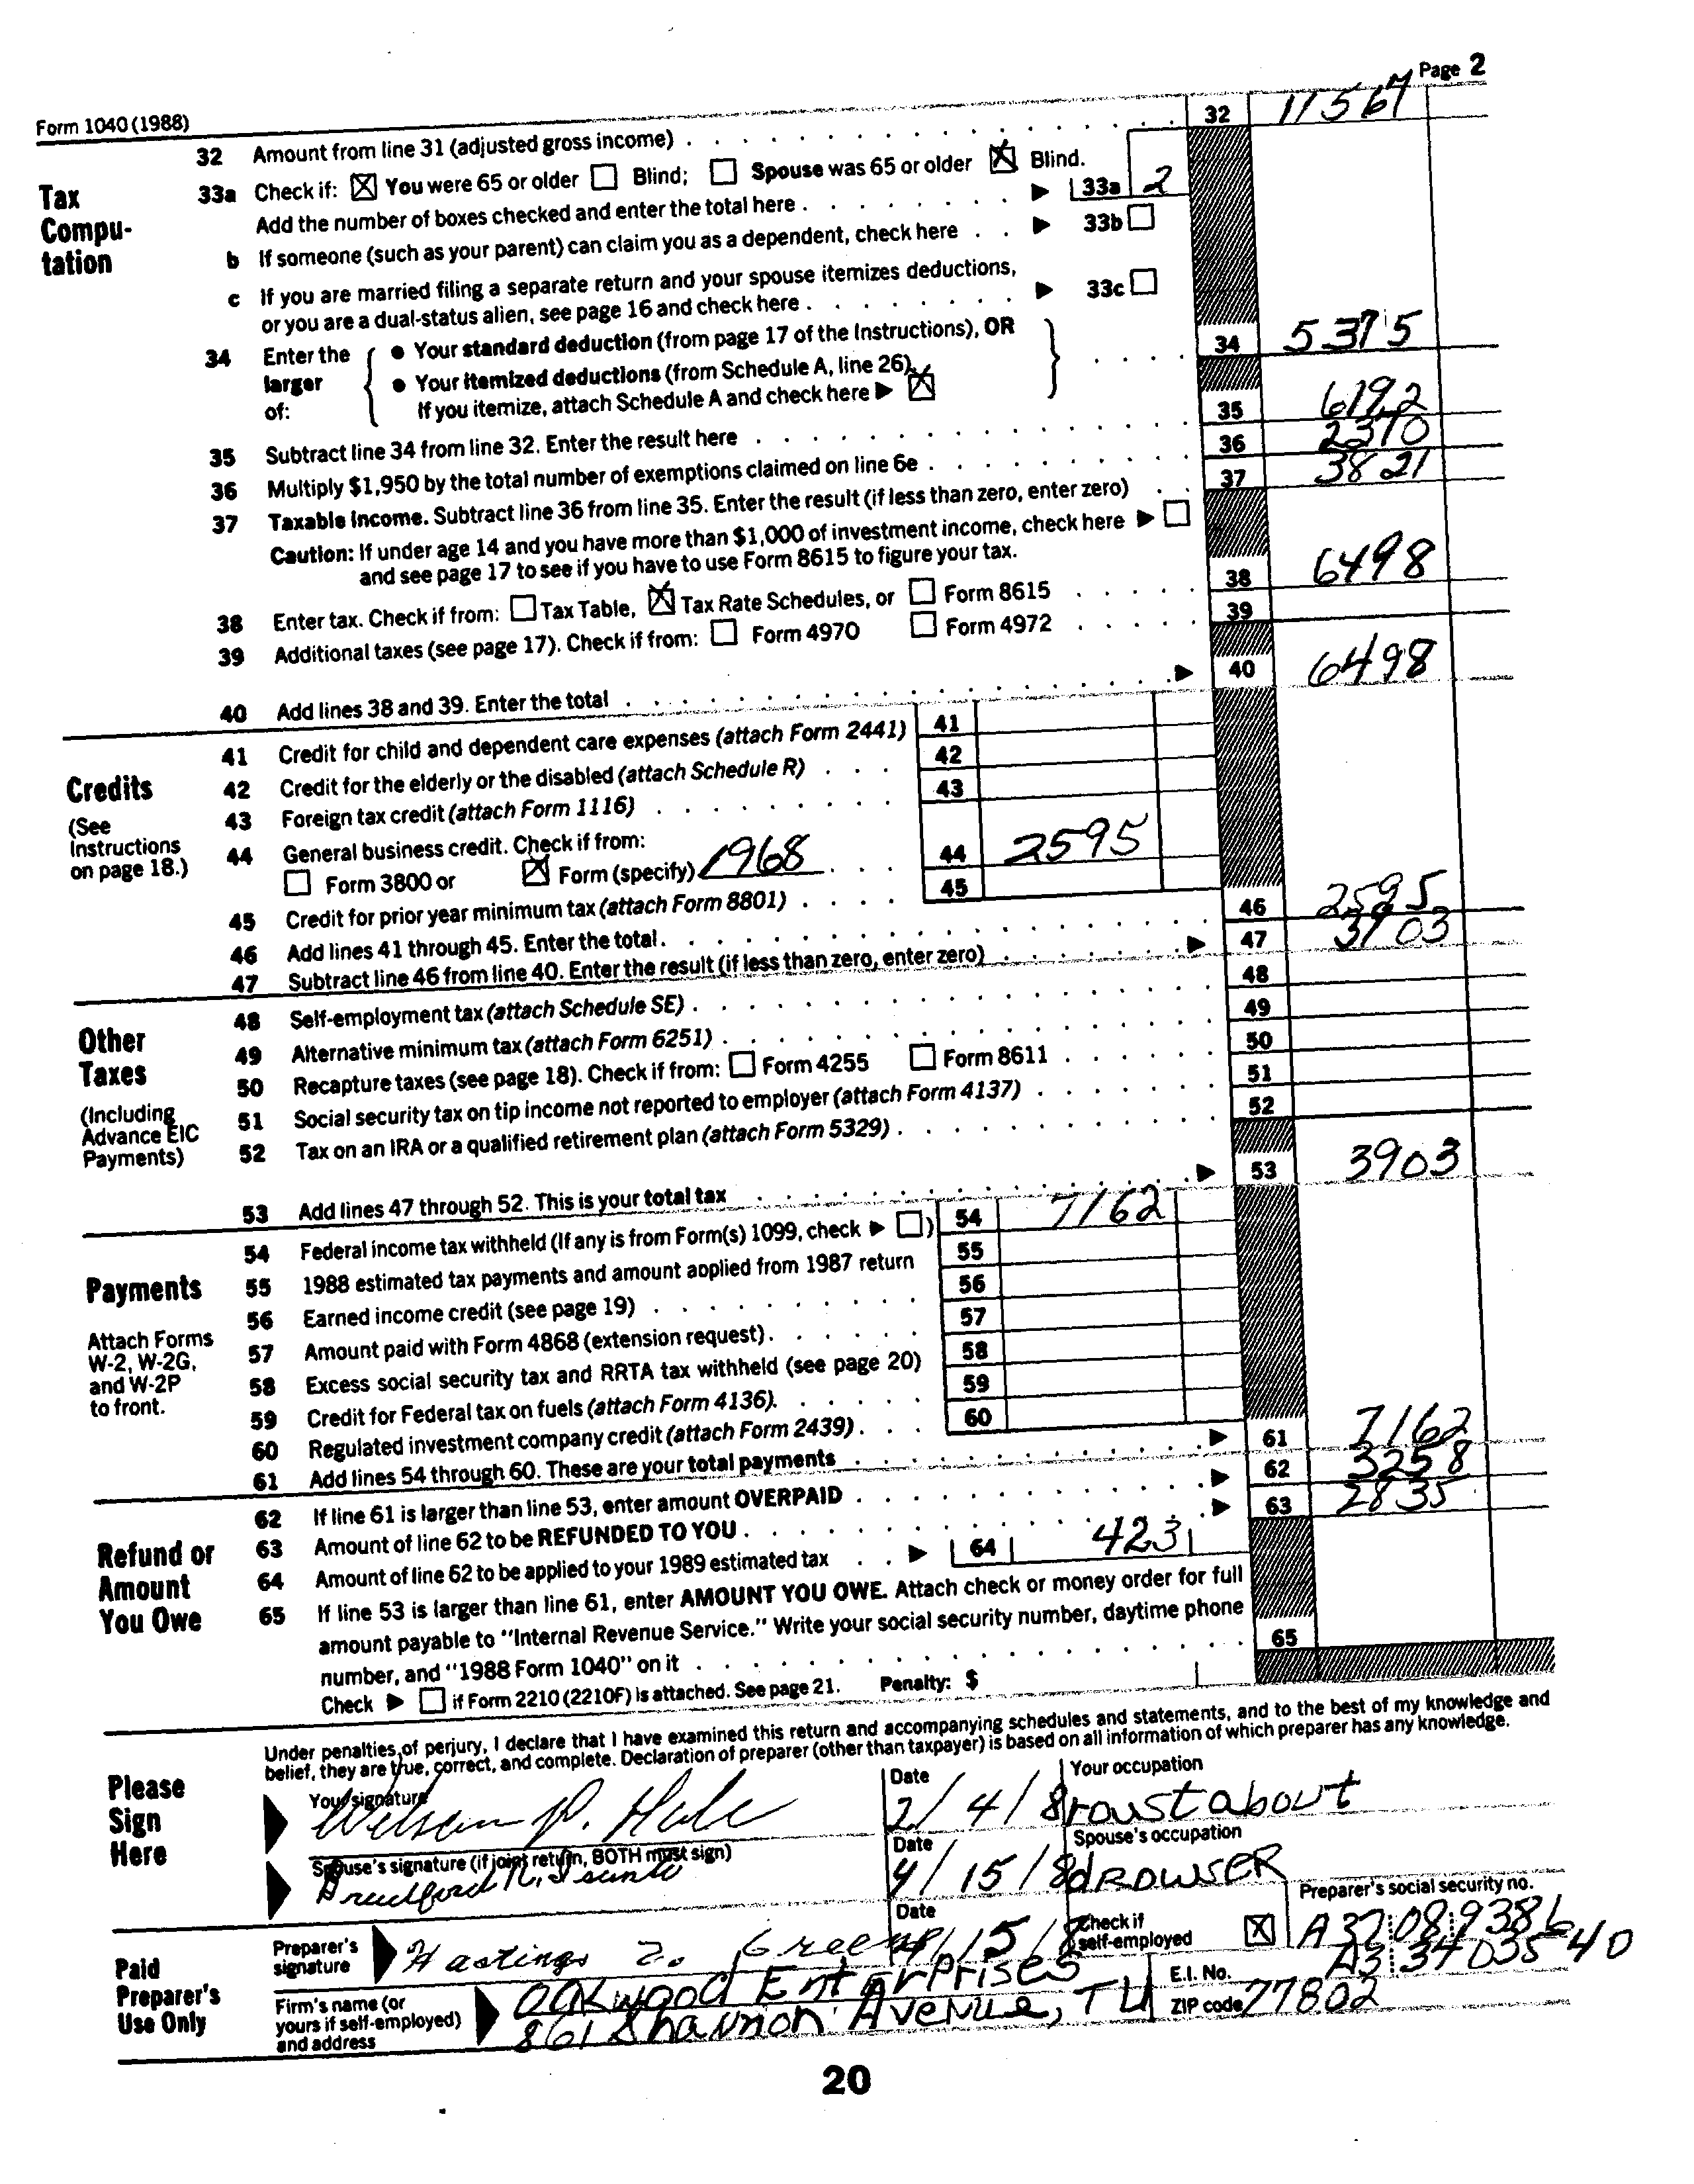 Page 2
Form 1040 (1988)
32 Amount from line 31 (adjusted gross income) 32 11567
Tax Computation
33a Check if: ☒ You were 65 or older ☐ Blind; ☐ Spouse was 65 or older ☒ Blind.
Add the number of boxes checked and enter the total here 33a 2
b If someone (such as your parent) can claim you as a dependent, check here 33b ☐
c If you are married filing a separate return and your spouse itemizes deductions,
or you are a dual-status alien, see page 16 and check here 33c ☐
34 Enter the larger of: • Your standard deduction (from page 17 of the Instructions), OR 34 5375
• Your itemized deductions (from Schedule A, line 26).
If you itemize, attach Schedule A and check here ► ☒
35 Subtract line 34 from line 32. Enter the result here 35 6192
36 Multiply $1,950 by the total number of exemptions claimed on line 6e 36 2370
37 Taxable income. Subtract line 36 from line 35. Enter the result (if less than zero, enter zero) 37 3821
Caution: If under age 14 and you have more than $1,000 of investment income, check here ► ☐
and see page 17 to see if you have to use Form 8615 to figure your tax.
38 Enter tax. Check if from: ☐ Tax Table, ☒ Tax Rate Schedules, or ☐ Form 8615 38 6498
39 Additional taxes (see page 17). Check if from: ☐ Form 4970 ☐ Form 4972 39
40 Add lines 38 and 39. Enter the total ► 40 6498
Credits
(See Instructions on page 18.)
41 Credit for child and dependent care expenses (attach Form 2441) 41
42 Credit for the elderly or the disabled (attach Schedule R) 42
43 Foreign tax credit (attach Form 1116) 43
44 General business credit. Check if from:
☐ Form 3800 or ☒ Form (specify) 1968 44 2595
45 Credit for prior year minimum tax (attach Form 8801) 45
46 Add lines 41 through 45. Enter the total 46 2595
47 Subtract line 46 from line 40. Enter the result (if less than zero, enter zero) ► 47 3903
Other Taxes
(Including Advance EIC Payments)
48 Self-employment tax (attach Schedule SE) 48
49 Alternative minimum tax (attach Form 6251) 49
50 Recapture taxes (see page 18). Check if from: ☐ Form 4255 ☐ Form 8611 50
51 Social security tax on tip income not reported to employer (attach Form 4137) 51
52 Tax on an IRA or a qualified retirement plan (attach Form 5329) 52
53 Add lines 47 through 52. This is your total tax ► 53 3903
Payments
Attach Forms W-2, W-2G, and W-2P to front.
54 Federal income tax withheld (If any is from Form(s) 1099, check ► ☐) 54 7162
55 1988 estimated tax payments and amount applied from 1987 return 55
56 Earned income credit (see page 19) 56
57 Amount paid with Form 4868 (extension request) 57
58 Excess social security tax and RRTA tax withheld (see page 20) 58
59 Credit for Federal tax on fuels (attach Form 4136) 59
60 Regulated investment company credit (attach Form 2439) 60
61 Add lines 54 through 60. These are your total payments ► 61 7162
Refund or Amount You Owe
62 If line 61 is larger than line 53, enter amount OVERPAID ► 62 3258
63 Amount of line 62 to be REFUNDED TO YOU ► 63 2835
64 Amount of line 62 to be applied to your 1989 estimated tax ► 64 423
65 If line 53 is larger than line 61, enter AMOUNT YOU OWE. Attach check or money order for full
amount payable to "Internal Revenue Service." Write your social security number, daytime phone
number, and "1988 Form 1040" on it 65
Check ► ☐ if Form 2210 (2210F) is attached. See page 21. Penalty: $
Please Sign Here
Under penalties of perjury, I declare that I have examined this return and accompanying schedules and statements, and to the best of my knowledge and
belief, they are true, correct, and complete. Declaration of preparer (other than taxpayer) is based on all information of which preparer has any knowledge.
Your signature Date Your occupation
2/4/8 roustabout
Spouse's signature (if joint return, BOTH must sign) Date Spouse's occupation
4/15/8 dROWSER
Paid Preparer's Use Only
Preparer's signature Hastings Greene Date Check if self-employed ☒ Preparer's social security no.
Firm's name (or yours if self-employed) and address Oakwood Enterprises E.I. No.
861 Shannon Avenue, TU ZIP code 77802
20